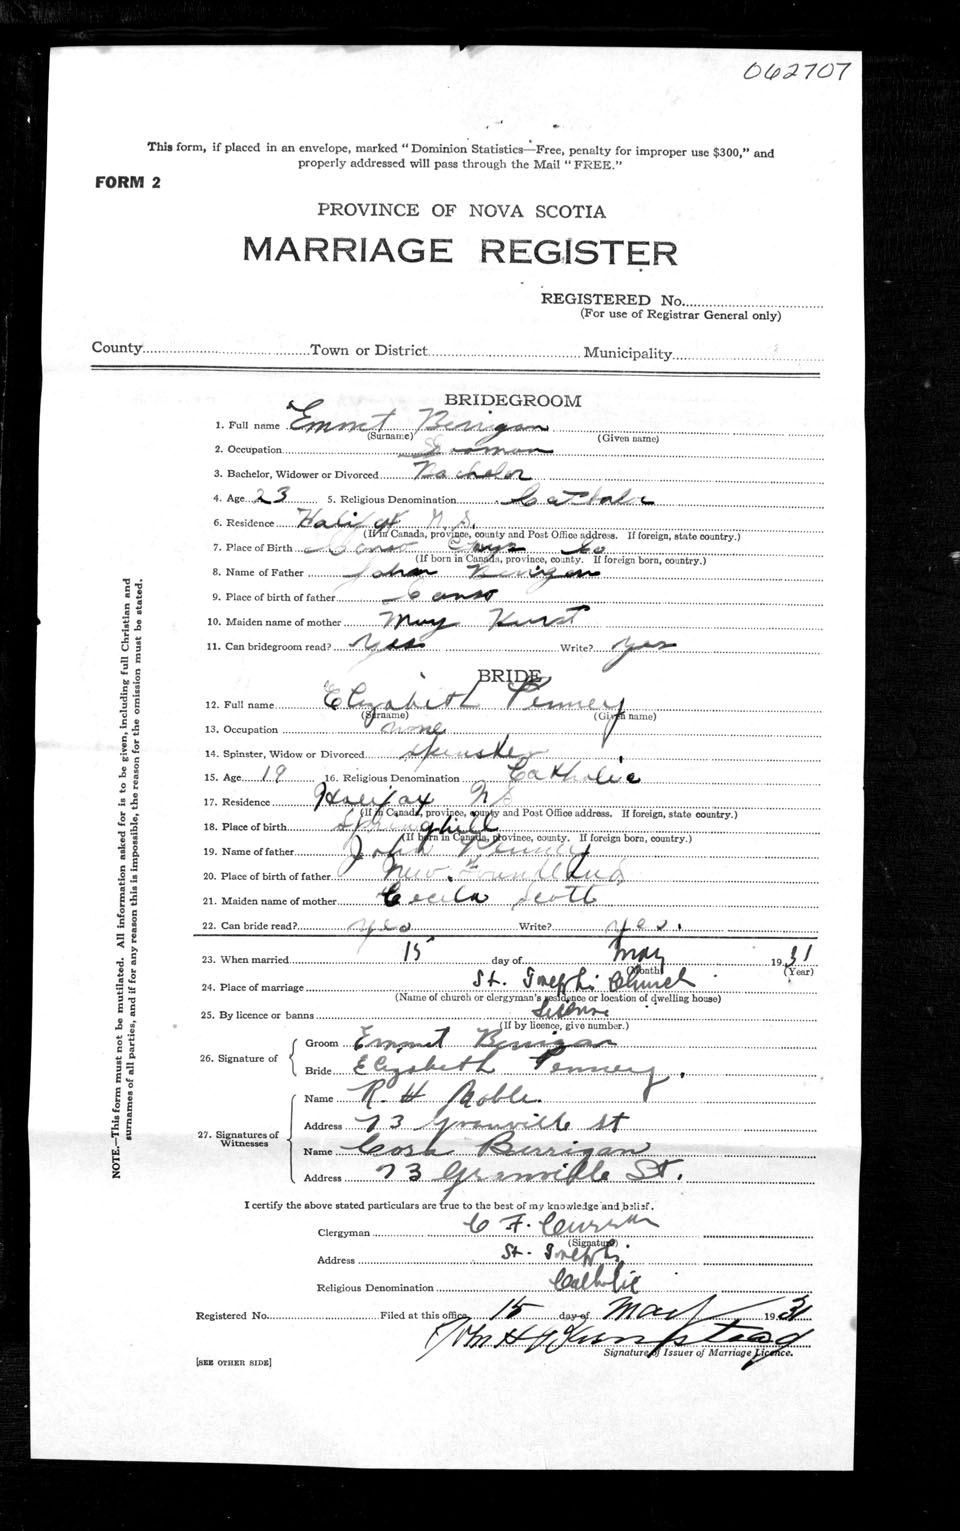 062707
This form, if placed in an envelope, marked "Dominion Statistics—Free, penalty for improper use $300," and
properly addressed will pass through the Mail "FREE."
FORM 2
PROVINCE OF NOVA SCOTIA
MARRIAGE REGISTER
REGISTERED No.
(For use of Registrar General only)
County Town or District Municipality
BRIDEGROOM
1. Full name Emmet Berrigan
(Surname) (Given name)
2. Occupation Seaman
3. Bachelor, Widower or Divorced Bachelor
4. Age 23 5. Religious Denomination Catholic
6. Residence Halifax N.S.
(If in Canada, province, county and Post Office address. If foreign, state country.)
7. Place of Birth Canso Guys Co
(If born in Canada, province, county. If foreign born, country.)
8. Name of Father John Berrigan
9. Place of birth of father Canso
10. Maiden name of mother May
11. Can bridegroom read? Yes Write? Yes
BRIDE
12. Full name Elizabeth Penney
(Surname) (Given name)
13. Occupation none
14. Spinster, Widow or Divorced Spinster
15. Age 19 16. Religious Denomination Catholic
17. Residence Halifax N S
(If in Canada, province, county and Post Office address. If foreign, state country.)
18. Place of birth Springhill
(If born in Canada, province, county. If foreign born, country.)
19. Name of father John Penney
20. Place of birth of father New Foundland
21. Maiden name of mother Cecila Scott
22. Can bride read? yes Write? yes.
23. When married 15 day of May 1931
(Month) (Year)
24. Place of marriage St. Joseph's Church
(Name of church or clergyman's residence or location of dwelling house)
25. By licence or banns License
(If by licence, give number.)
26. Signature of
Groom Emmet Berrigan
Bride Elizabeth Penney.
27. Signatures of Witnesses
Name R. H Noble.
Address 73 Granville St
Name Berrigan
Address 73 Granville St.
I certify the above stated particulars are true to the best of my knowledge and belief.
Clergyman C F. Curran
(Signature)
Address St. Joseph's
Religious Denomination Catholic
Registered No. Filed at this office 15 day of May 1931
Signature of Issuer of Marriage Licence.
[SEE OTHER SIDE]
NOTE.—This form must not be mutilated. All information asked for is to be given, including full Christian and
surnames of all parties, and if for any reason this is impossible, the reason for the omission must be stated.